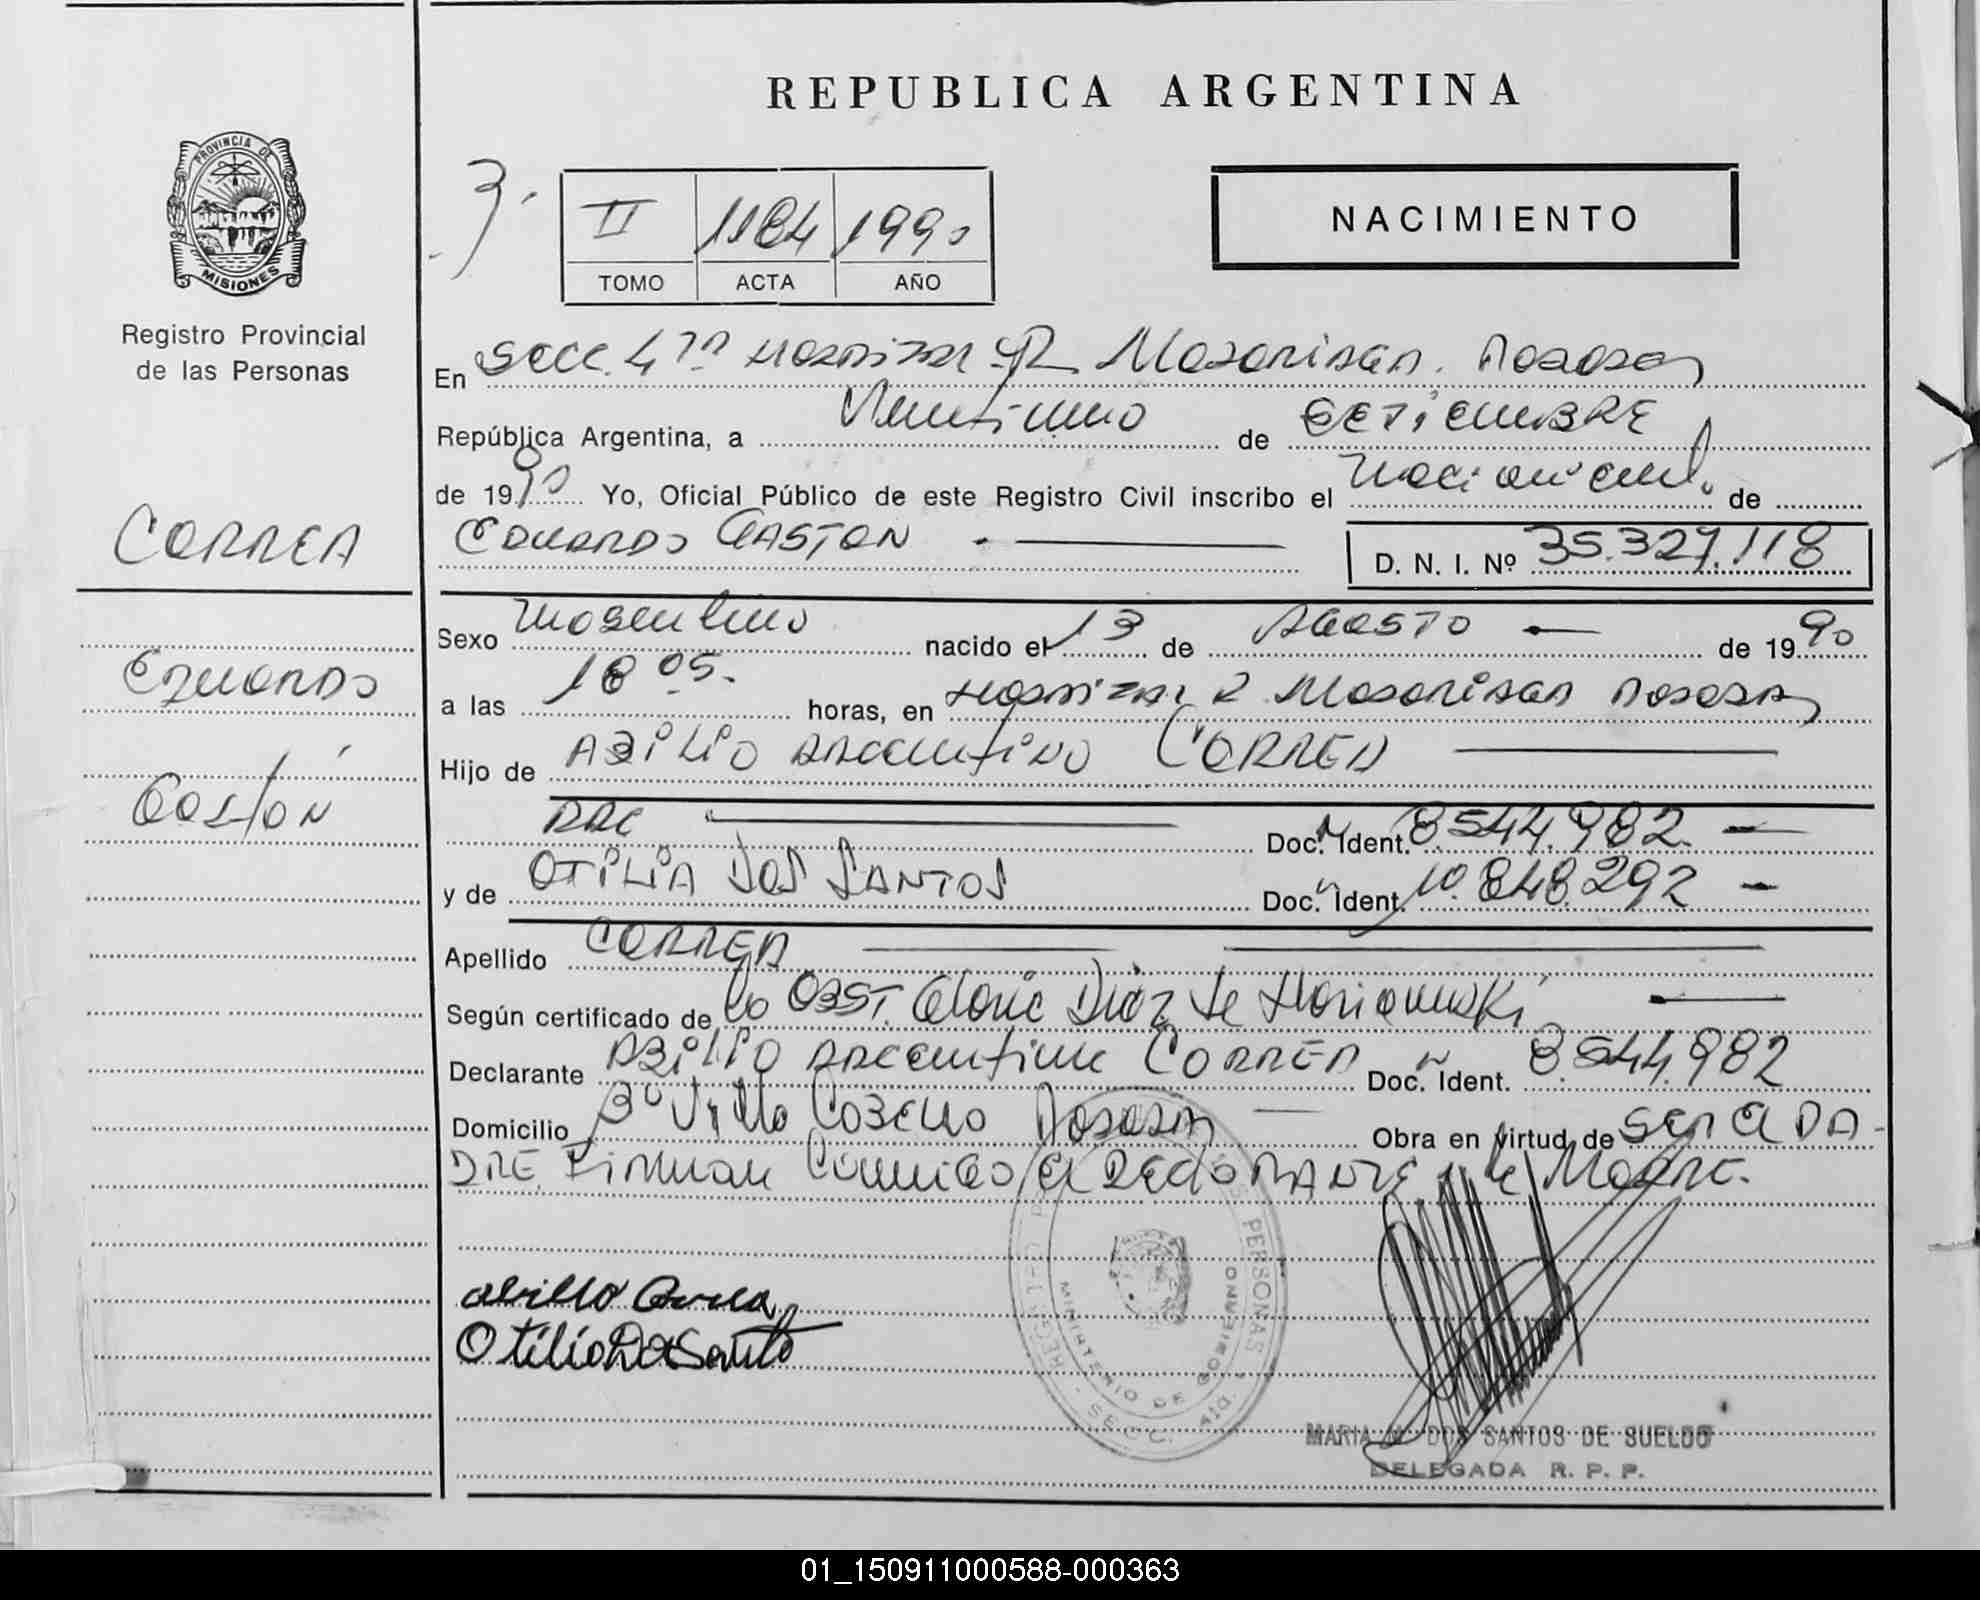 REPUBLICA ARGENTINA
PROVINCIA DE
MISIONES
Registro Provincial
de las Personas
3.
II 1184 1990
TOMO ACTA AÑO
NACIMIENTO
En Secc. 4ta Hospital R Madariaga. Posadas
República Argentina, a Veintiuno de SETIEMBRE
de 1990 Yo, Oficial Público de este Registro Civil inscribo el nacimient. de
CORREA
EDUARDO GASTON . D. N. I. Nº 35.327.118
Sexo masculino nacido el 13 de AGOSTO — de 1990
EDUARDO
a las 18 05. horas, en Hospital R Madariaga Posadas
Hijo de ABILIO ARGENTINO CORREA
Gastón
ARG Doc. Ident. 8.544.982. —
y de OTILIA DOS SANTOS Doc. Ident. 10.848.292 —
Apellido CORREA
Según certificado de la OBST. Gloria Diaz de
Declarante ABILIO ARGENTINO CORREA Doc. Ident. 8.544.982
Domicilio Bº Villa Cabello Posadas — Obra en virtud de SER EL PA-
DRE. Firman Conmigo el DECLARANTE y la MADRE.
abilio Correa
Otilia Do Santo
REGISTRO PERSONAS
MINISTERIO DE GOBIERNO
SECC. 4ta.
MARIA M. DOS SANTOS DE SUELDO
DELEGADA R. P. P.
01_150911000588-000363